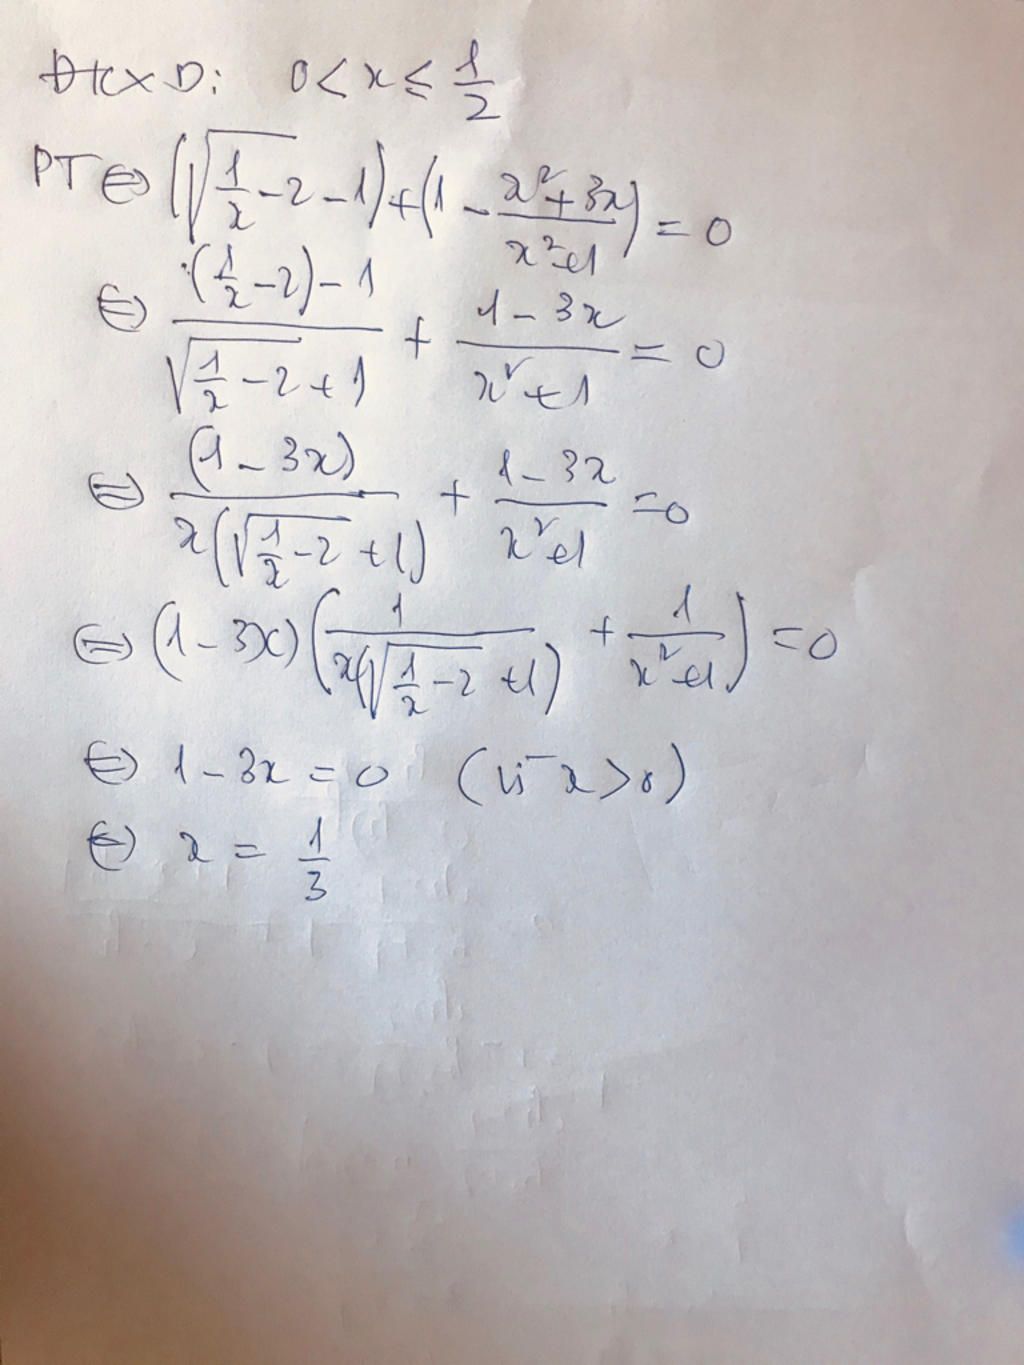 ĐKXĐ: 0 < x ≤ 1/2
PT ⇔ (√(1/x - 2) - 1) + (1 - (x² + 3x)/(x² + 1)) = 0
⇔ ((1/x - 2) - 1)/(√(1/x - 2) + 1) + (1 - 3x)/(x² + 1) = 0
⇔ (1 - 3x)/(x(√(1/x - 2) + 1)) + (1 - 3x)/(x² + 1) = 0
⇔ (1 - 3x)(1/(x(√(1/x - 2) + 1)) + 1/(x² + 1)) = 0
⇔ 1 - 3x = 0 (vì x > 0)
⇔ x = 1/3